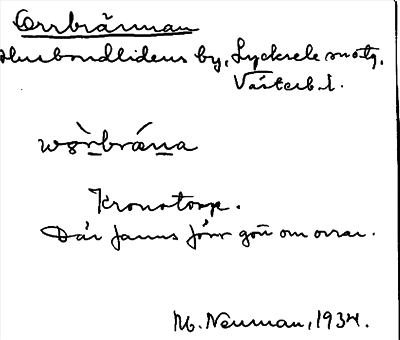 Orrbrännan
Husbondlidens by, Lycksele sn o tg.
Västerb. l.
Kronotorp.
Där fanns förr gott om orrar.
M. Neuman, 1934.